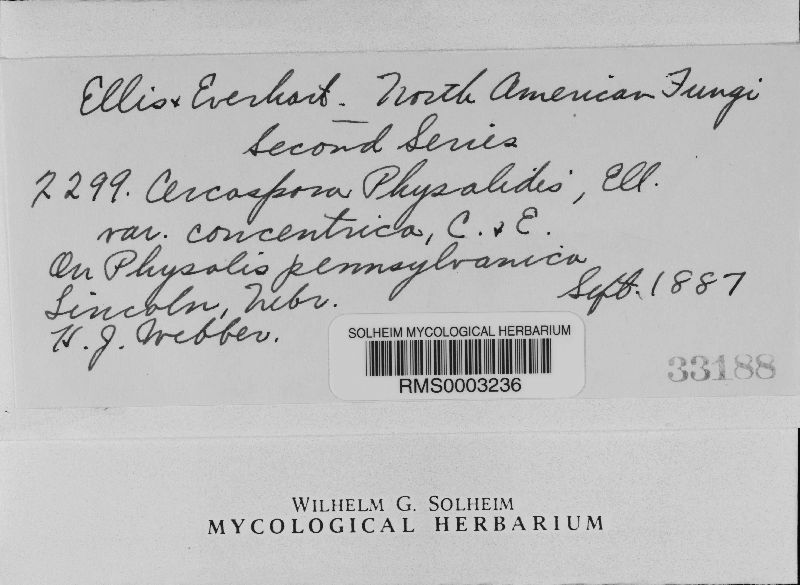 Ellis & Everhart - North American Fungi
Second Series
2299. Cercospora Physalidis, Ell.
var. concentrica, C. & E.
On Physalis pennsylvanica
Lincoln, Nebr. Sept. 1887
H. J. Webber.
SOLHEIM MYCOLOGICAL HERBARIUM
RMS0003236
33188
WILHELM G. SOLHEIM
MYCOLOGICAL HERBARIUM